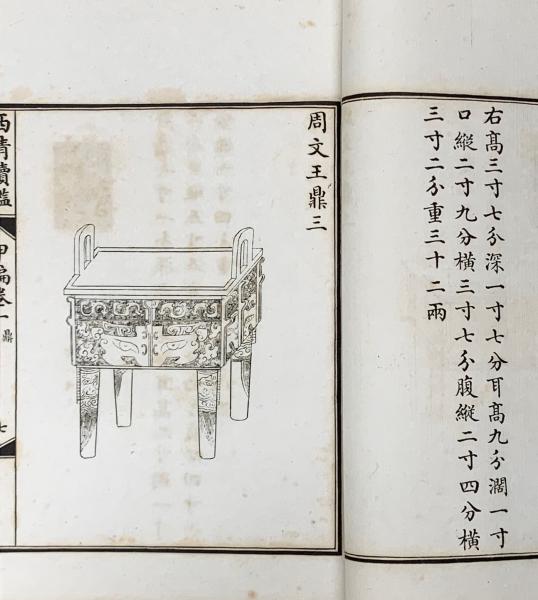 右髙三寸七分深一寸七分耳髙九分濶一寸
口縱二寸九分橫三寸七分腹縱二寸四分橫
三寸二分重三十二兩
周文王鼎三
西清續鑑
甲編卷一
鼎
七